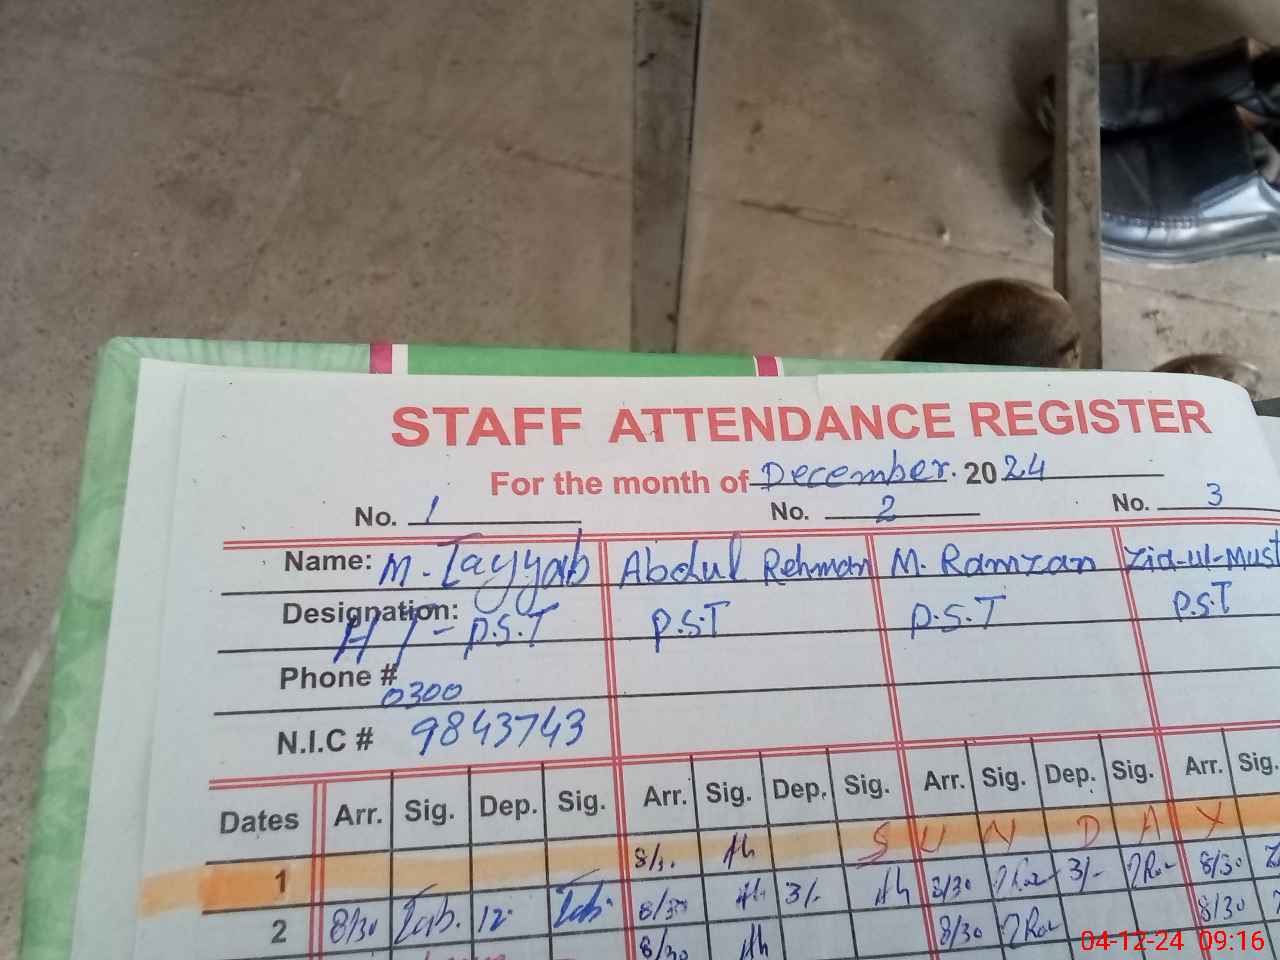 STAFF ATTENDANCE REGISTER
For the month of December. 2024
No. 1 No. 2 No. 3
Name: M. Tayyab Abdul Rehman M. Ramzan Zia-ul-Must
Designation: HT - P.S.T P.S.T P.S.T P.S.T
Phone # 0300
N.I.C # 9843743
Dates Arr. Sig. Dep. Sig. Arr. Sig. Dep. Sig. Arr. Sig. Dep. Sig. Arr. Sig.
1 8/3. Ah S U N D A Y
2 8/30 Tab. 12- Tab. 8/30 Ah 3/- Ah 8/30 3/- 8/30
8/30 Ah 8/30 8/30
04-12-24 09:16